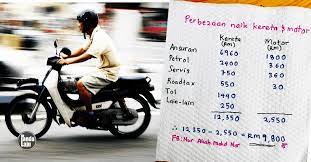 Perbezaan naik kereta & motor
Kereta Motor
(RM) (RM)
Ansuran 6960 1800
Petrol 2400 360
Servis 750 360
Roadtax 550 30
Tol 1440
Lain-lain 250
12,350 2,550
∴ 12,350 - 2,550 = RM 9,800
FB: Nur Mohd Nor